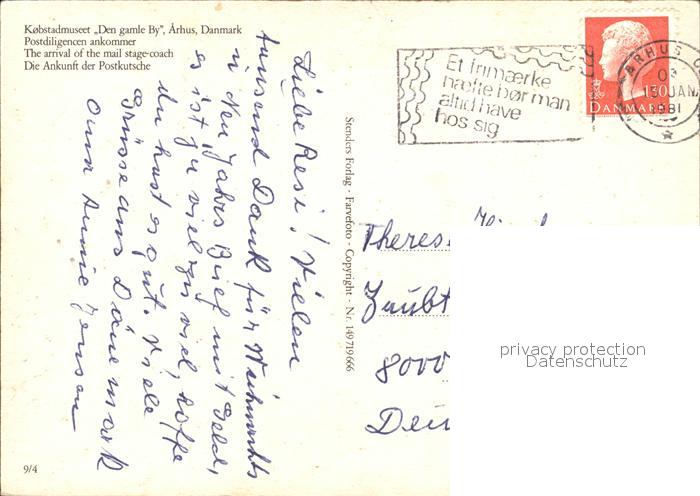 Købstadmuseet „Den gamle By", Århus, Danmark
Postdiligencen ankommer
The arrival of the mail stage-coach
Die Ankunft der Postkutsche
Liebe Resi! Vielen
tausend Dank für Weihnachts
u Neu Jahrs Brief mit Geld,
es ist zu viel zu viel, hoffe
du hast es gut. Viele
Grüsse aus Dänemark
Oma Annie Jensen
9/4
Stenders Forlag - Farvefoto - Copyright - Nr. 149719666
Et frimærke
hæfte bør man
altid have
hos sig
ÅRHUS C
JAN.
1981
130
DANMARK
Theres
8000
Deu
privacy protection
Datenschutz